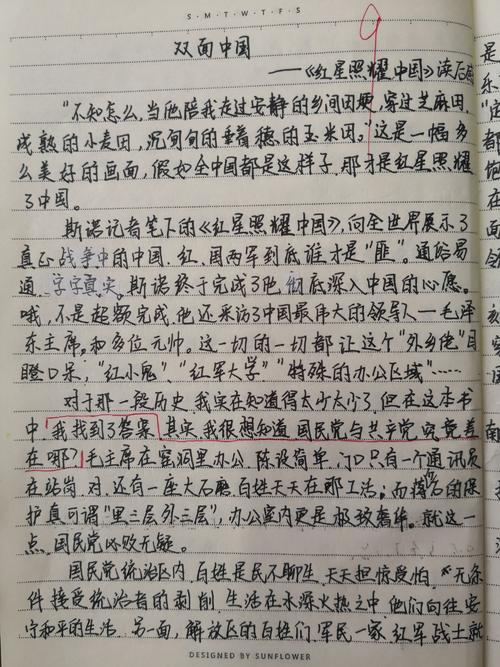 S·M·T·W·T·F·S
双面中国
——《红星照耀中国》读后感
“不知怎么,当他陪我走过安静的乡间田埂,穿过芝麻田,
成熟的小麦田,沉甸甸的垂着穗的玉米田。”这是一幅多
么美好的画面,假如全中国都是这样子,那才是红星照耀
了中国。
斯诺记者笔下的《红星照耀中国》,向全世界展示了
真正战争中的中国.红、国两军到底谁才是“匪”。通俗易
通,字字真实。斯诺终于完成了他彻底深入中国的心愿。
哦,不是超额完成,他还采访了中国最伟大的领导人—毛泽
东主席,和多位元帅。这一切的一切都让这个“外乡佬”目
瞪口呆;“红小鬼”、“红军大学”“特殊的办公区域”……
对于那一段历史,我实在知道得太少太少了,但在这本书
中,我找到了答案.其实,我很想知道,国民党与共产党究竟差
在哪?毛主席在窑洞里办公,陈设简单,门口只有一个通讯员
在站岗,对,还有一座大石磨,百姓天天在那工活;而蒋的保
护真可谓“里三层外三层”,办公室内更是极致奢侈。就这一
点,国民党必败无疑。
国民党统治区内,百姓是民不聊生,天天担惊受怕,无条
件接受统治者的剥削,生活在水深火热之中.他们向往安
宁和平的生活.另一面,解放区的百姓们,军民一家,红军战士就
DESIGNED BY SUNFLOWER
是
乐